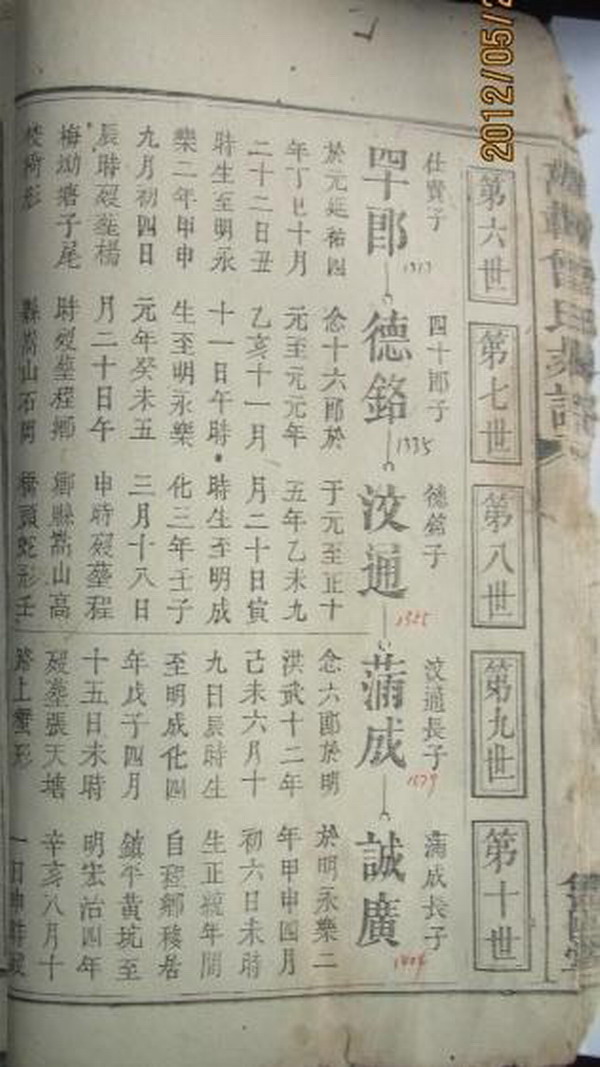 2012/05/2
第六世
仕賢子
四十郎
1317
於元延祐四
年丁巳十月
二十二日丑
時生至明永
樂二年甲申
九月初四日
辰時歿葬楊
梅坳塘子尾
形
第七世
四十郎子
德銘
1335
念十六郎於
元至元元年
乙亥十一月
十一日午時
生至明永樂
元年癸未五
月二十日午
時歿葬程鄉
縣嵩山石岡
第八世
德銘子
汶通
1355
于元至正十
五年乙未九
月二十日寅
時生至明成
化三年壬子
三月十八日
申時歿葬程
鄉縣嵩山高
橋頭蛇形壬
第九世
汶通長子
蒲成
1379
念六郎於明
洪武十二年
己未六月十
九日辰時生
至明成化四
年戊子四月
十五日未時
歿葬張天塘
路上蟹形
第十世
蒲成長子
誠廣
1404
於明永樂二
年甲申四月
初六日未時
生正統年間
自程鄉移居
鎮平黃坑至
明宏治四年
辛亥八月十
一日申時歿